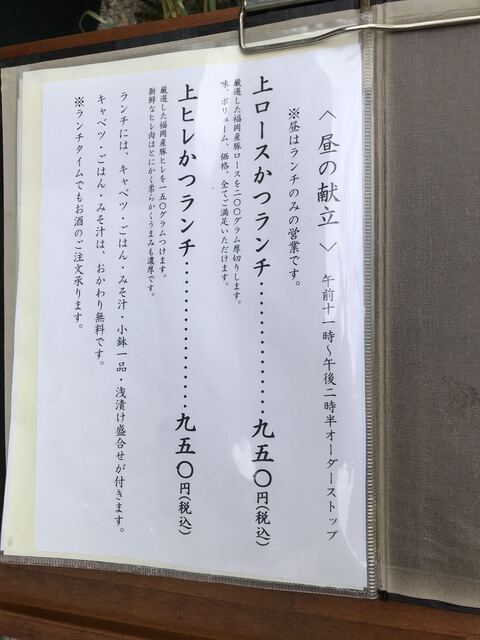 〈 昼の献立 〉 午前十一時～午後二時半オーダーストップ
※昼はランチのみの営業です。
上ロースかつランチ・・・・・・・・・・・・・・九五〇円(税込)
厳選した福岡産豚ロースを二〇〇グラム厚切りします。
味、ボリューム、価格、全てご満足いただけます。
上ヒレかつランチ・・・・・・・・・・・・・・・九五〇円(税込)
厳選した福岡産豚ヒレを一五〇グラムつけます。
新鮮なヒレ肉はとにかく柔らかくうまみも濃厚です。
ランチには、キャベツ・ごはん・みそ汁・小鉢一品・浅漬け盛合せが付きます。
キャベツ・ごはん・みそ汁は、おかわり無料です。
※ランチタイムでもお酒のご注文承ります。